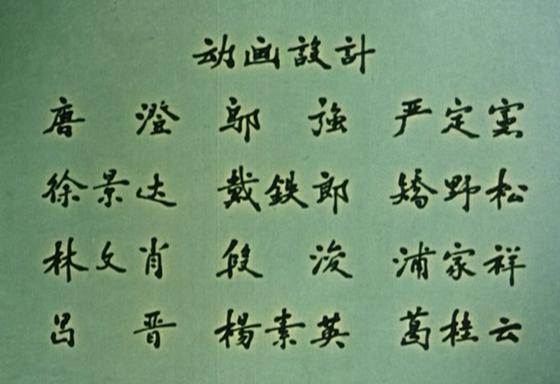 动画設計
唐澄 鄔強 严定宪
徐景达 戴鉄郎 矯野松
林文肖 段浚 浦家祥
吕晋 楊素英 葛桂云